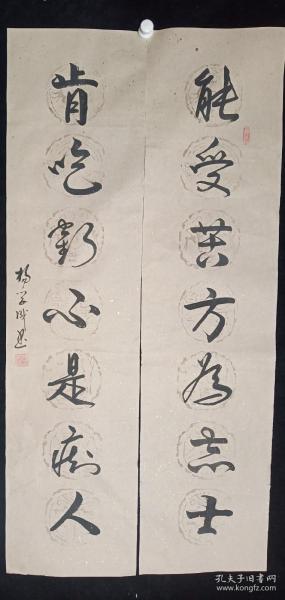 能受苦方為志士
肯吃虧心是痴人
楊学
孔夫子旧书网
www.kongfz.com